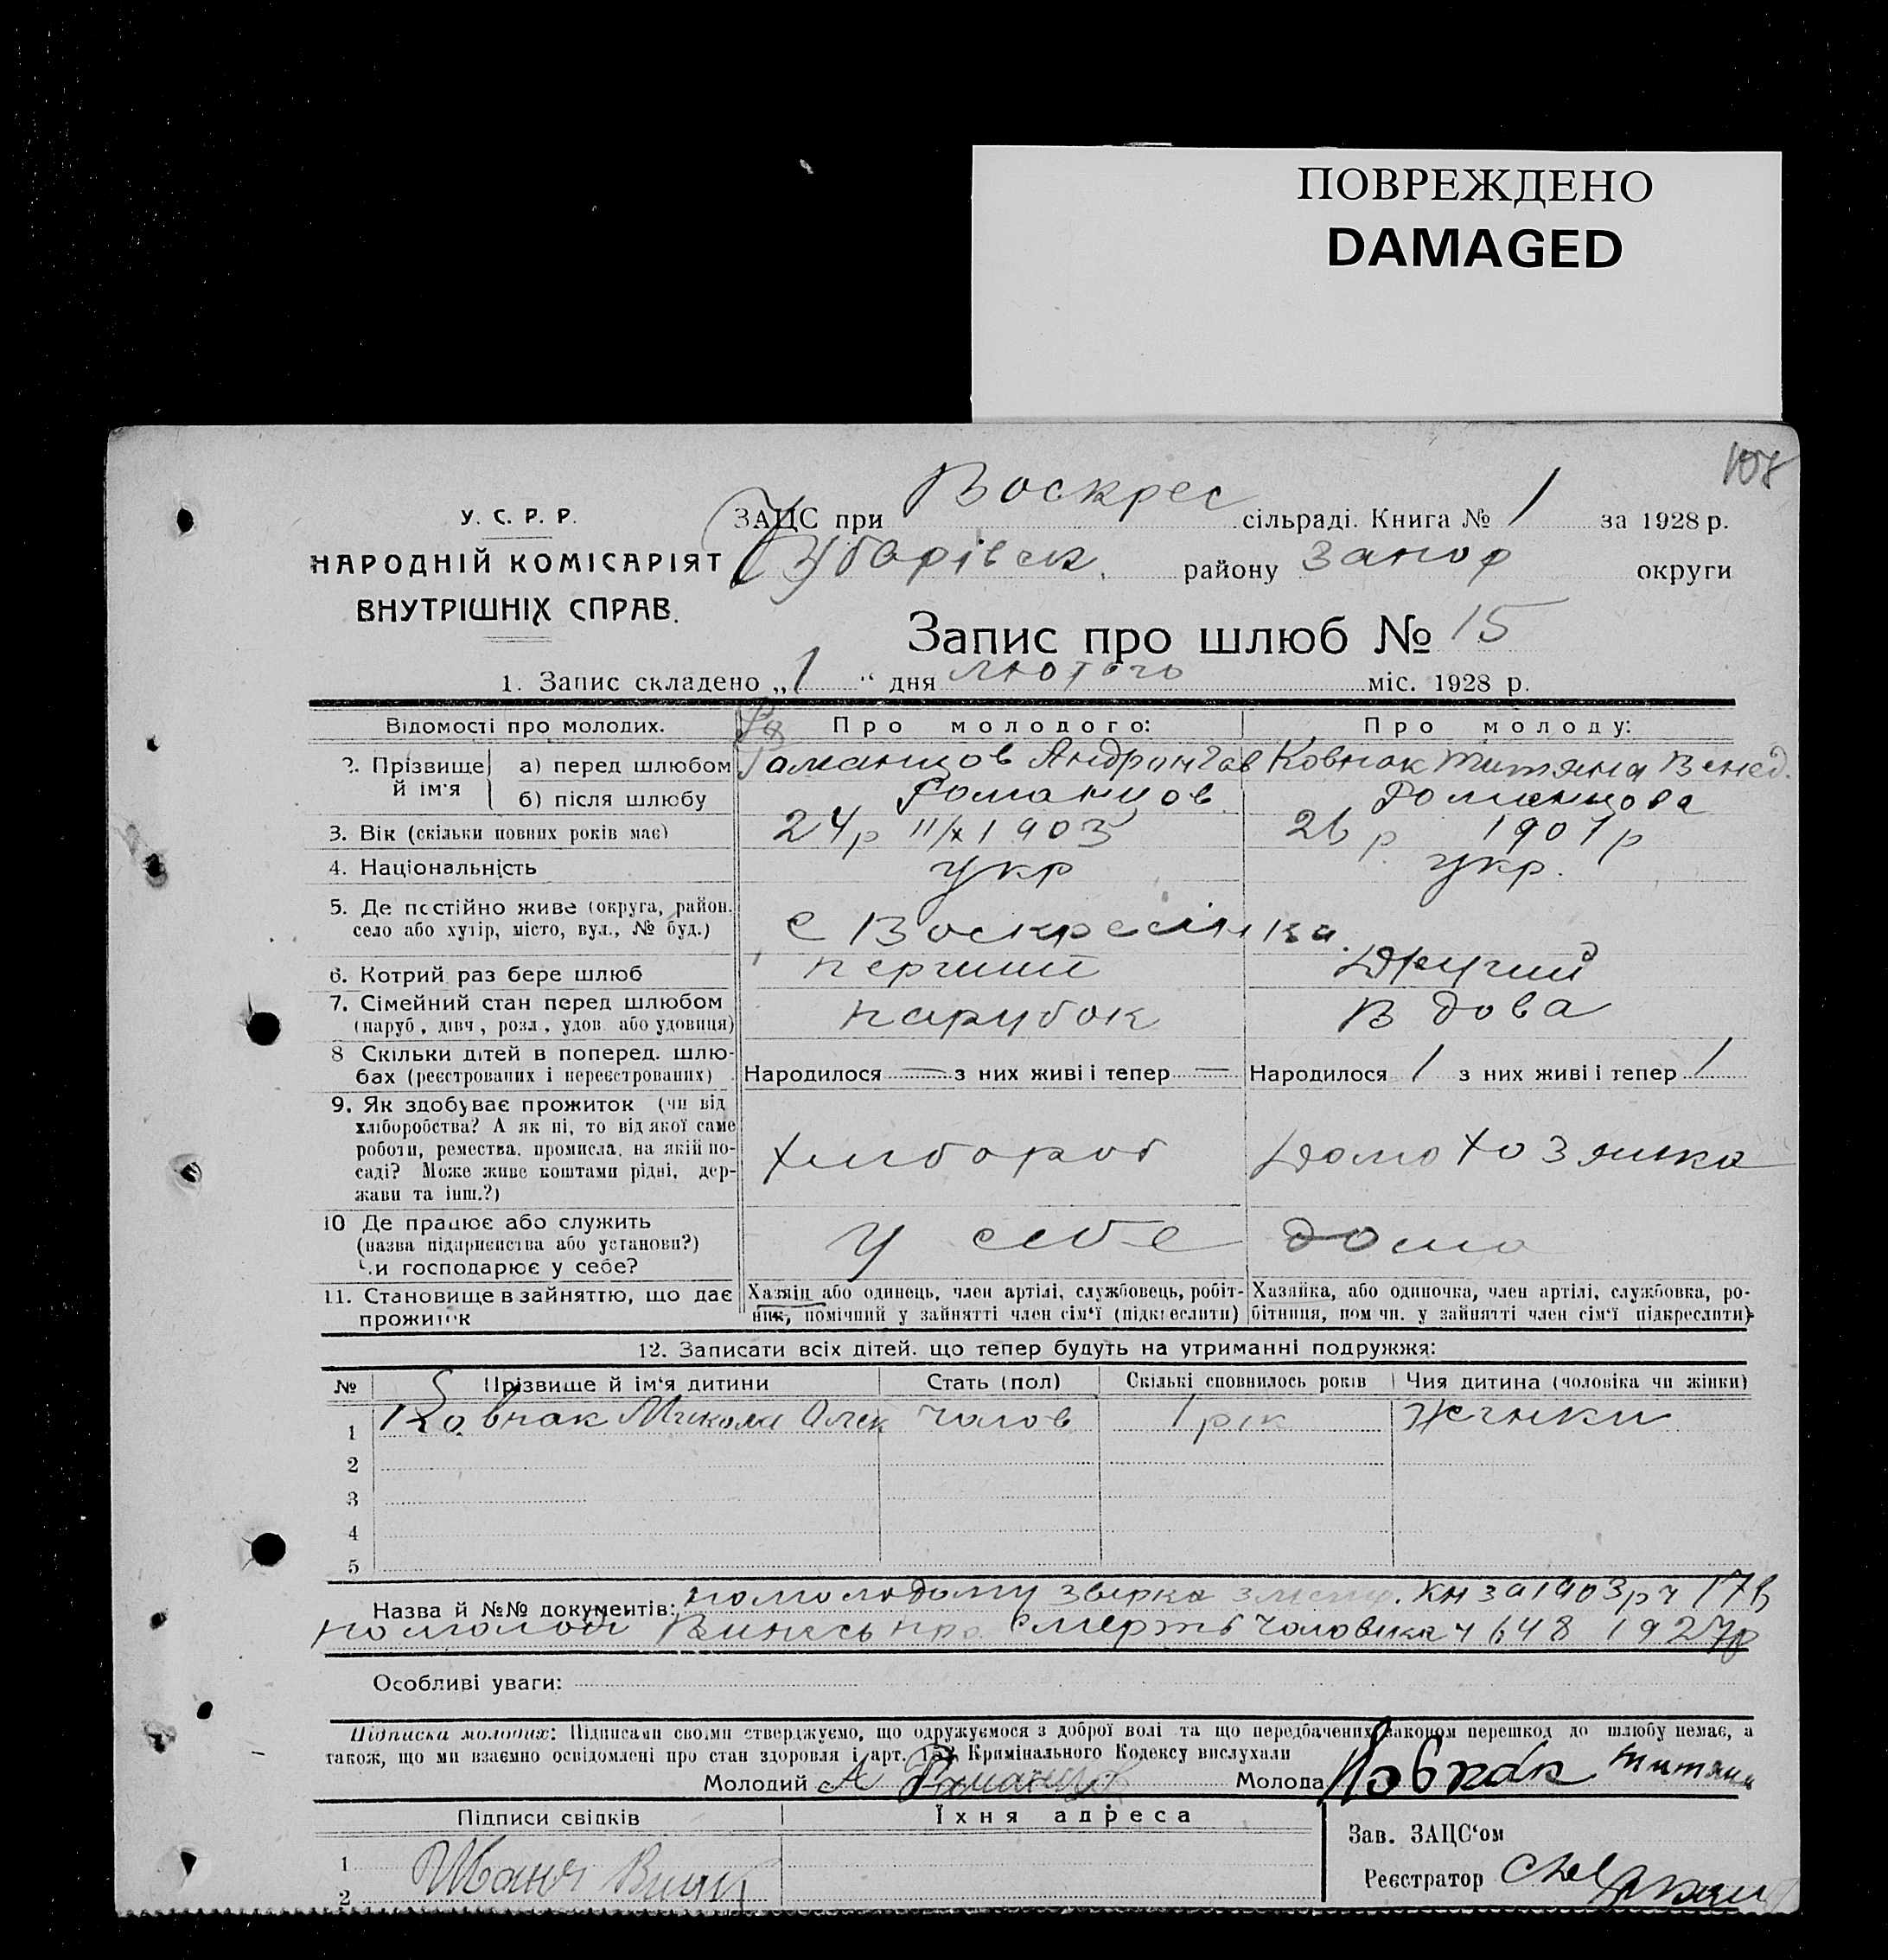 ПОВРЕЖДЕНО
DAMAGED
108
У. С. Р. Р.
НАРОДНІЙ КОМІСАРІЯТ
ВНУТРІШНІХ СПРАВ.
ЗАЦС при Воскрес сільраді. Книга № 1 за 1928 р.
району Запор округи
Запис про шлюб № 15
1. Запис складено „1“ дня лютого міс. 1928 р.
Відомості про молодих. Про молодого: Про молоду:
2. Прізвище й ім'я а) перед шлюбом Романцов Андрій Ковпак Титяна Венед.
б) після шлюбу Романцов Романцова
3. Вік (скільки повних років має) 24р 11/х 1903 26 р 1901р
4. Національність укр укр.
5. Де постійно живе (округа, район, село або хутір, місто, вул., № буд.) с Воскресінка.
6. Котрий раз бере шлюб перший Другий
7. Сімейний стан перед шлюбом (паруб., дівч., розл., удов. або удовиця) парубок Вдова
8 Скільки дітей в поперед. шлюбах (реєстрованих і нереєстрованих) Народилося — з них живі і тепер — Народилося 1 з них живі і тепер 1
9. Як здобуває прожиток (чи від
хліборобства? А як ні, то від якої саме
роботи, ремества, промисла, на якій по-
саді? Може живе коштами рідні, дер-
жави та інш.?) хлібороб Домохозяйка
10 Де працює або служить
(назва підприємства або установи?)
Чи господарює у себе? У себе дома
11. Становище в зайняттю, що дає прожиток
Хазяїн або одинець, член артілі, службовець, робіт-
ник, помічний у зайнятті член сім'ї (підкреслити)
Хазяйка, або одиночка, член артілі, службовка, ро-
бітниця, помічн. у зайнятті член сім'ї підкреслити)
12. Записати всіх дітей, що тепер будуть на утриманні подружжя:
№ Прізвище й ім'я дитини Стать (пол) Скількі сповнилось років Чия дитина (чоловіка чи жінки)
1 Ковпак Микола Олек чолов 1 рік жінки
2
3
4
5
Назва й №№ документів: по молодому звірка з кн за 1903р ч 178
по молодій Випись про смерть чоловіка ч 648 1927р
Особливі уваги:
Підписка молодих: Підписами своїми стверджуємо, що одружуємося з доброї волі та що передбачених законом перешкод до шлюбу немає, а
також, що ми взаємно освідомлені про стан здоровля і арт. Кримінального Кодексу вислухали
Молодий А Романцов Молода Ковпак Титяна
Підписи свідків Їхня адреса
Зав. ЗАЦС'ом
1
Реєстратор
2